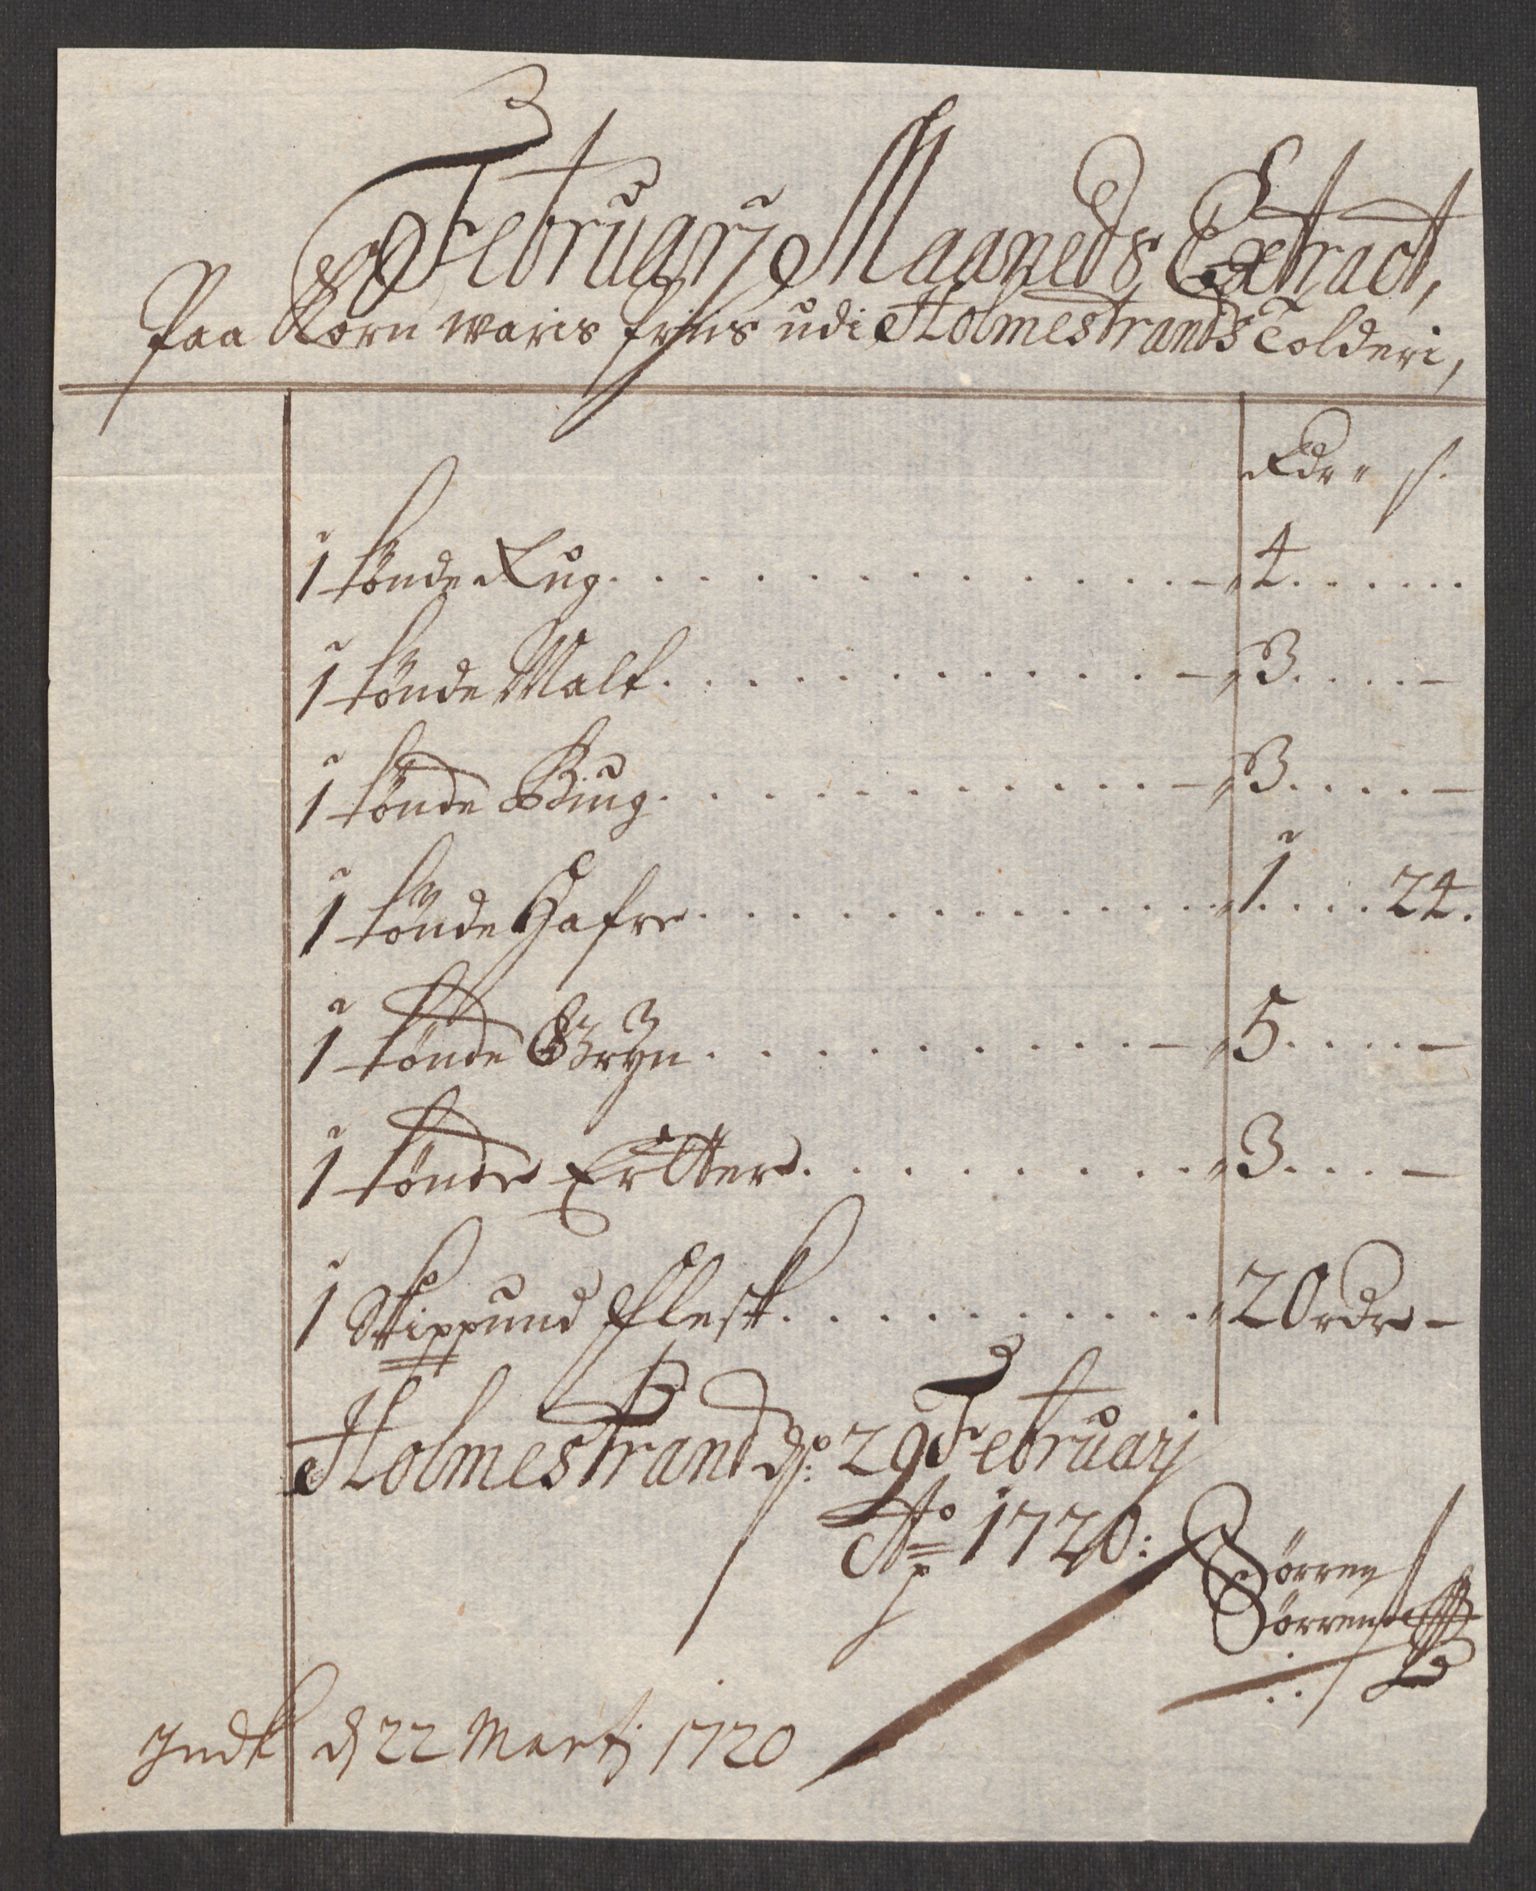 Februarj Maaneds Extract,
Paa Korn waris priis udi Holmestrands Tolderi,
Rdr s.
1 tønde Rug . . . . 4 . . . .
1 tønde Malt . . . . 3 . . . . –
1 tønde Biug . . . . 3 . . . . –
1 tønde Hafre . . . . 1 . . . . 24.
1 tønde Gryn . . . . 5 . . . . –
1 tønde Ertter . . . . 3 . . . . –
1 Skippund Flesk . . . . 20 rdr –
Holmestrand dn: 29 Februarj
Ao 1720:
Sørren
Sørrens
Indk d 22 Martj 1720